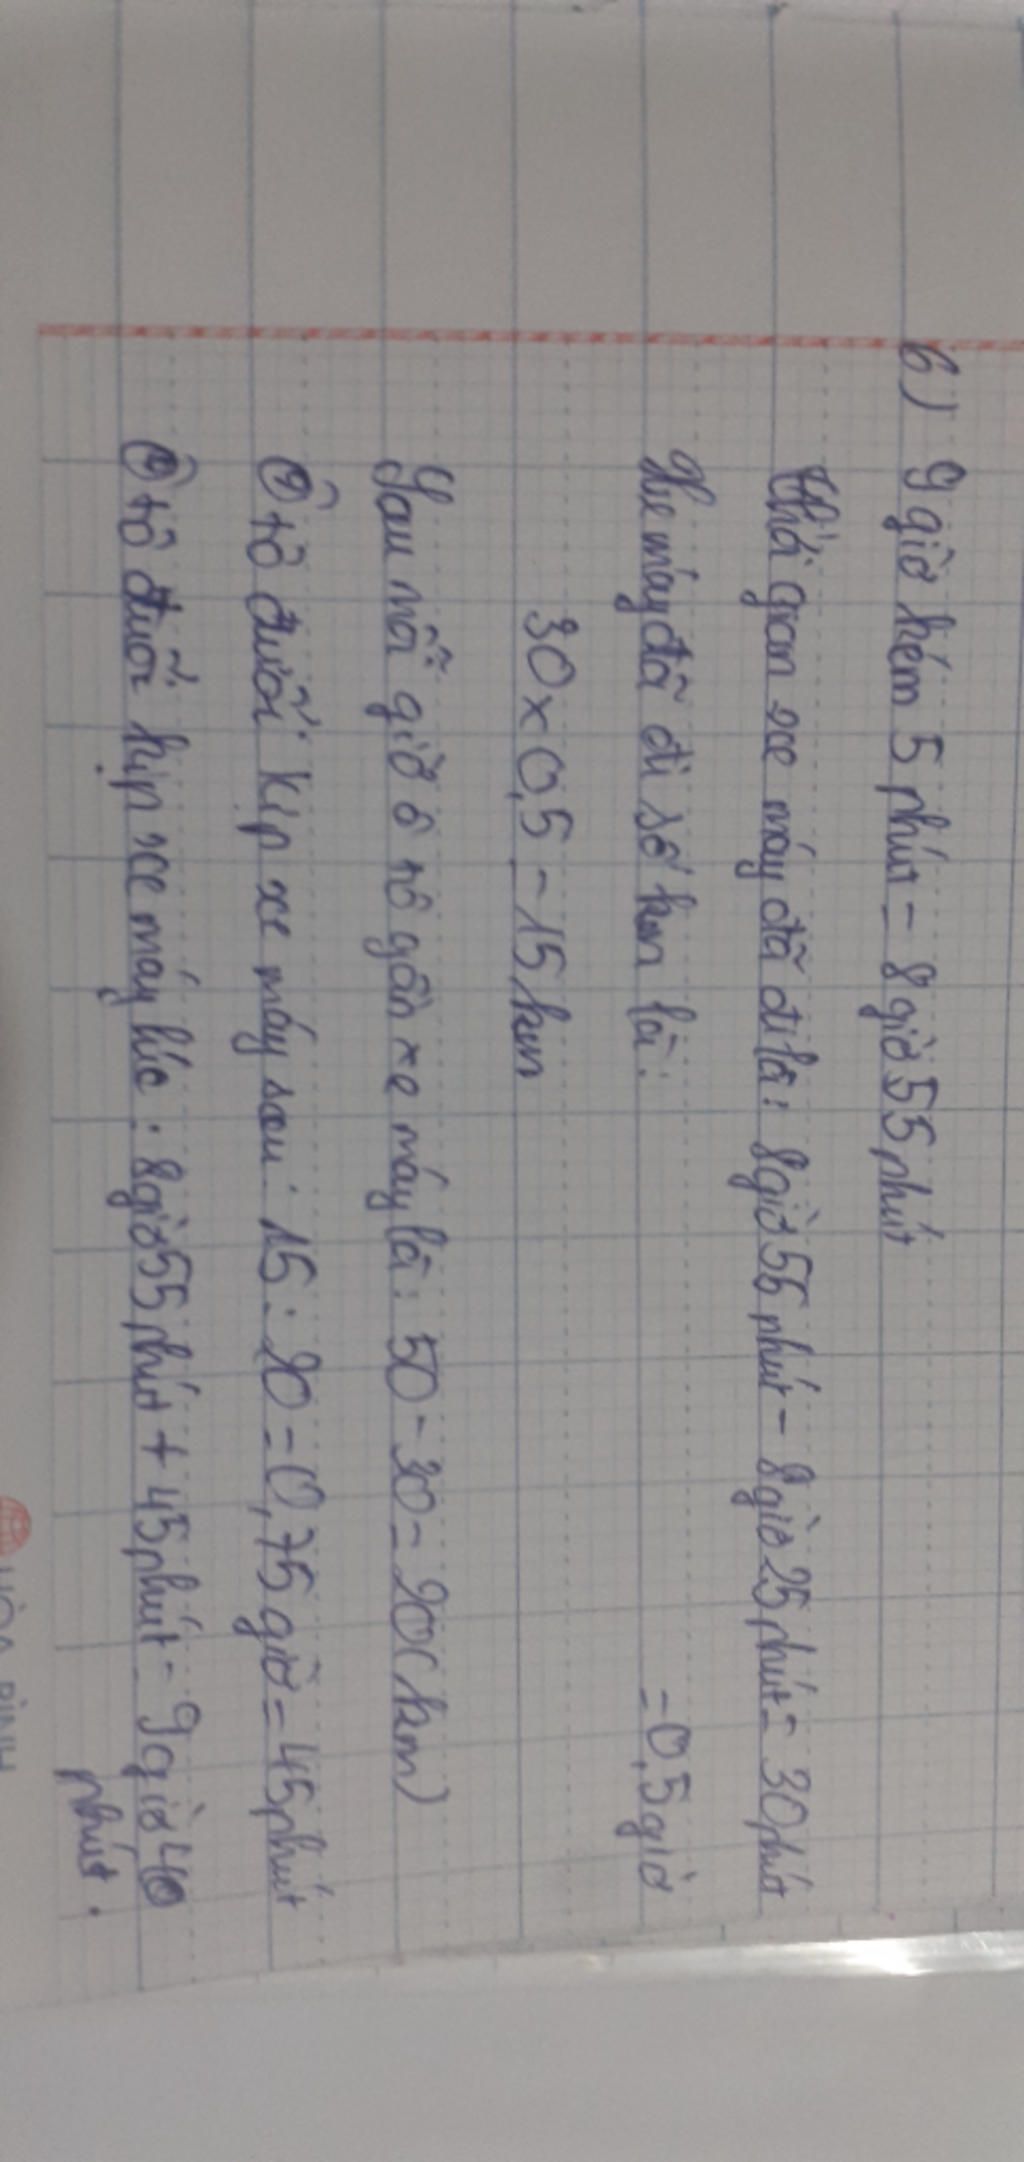 b) 9 giờ kém 5 phút = 8 giờ 55 phút
Thời gian xe máy đã đi là: 8 giờ 55 phút - 8 giờ 25 phút = 30 phút
= 0,5 giờ
Xe máy đã đi số km là:
30 x 0,5 = 15 km
Sau mỗi giờ ô tô gần xe máy là: 50 - 30 = 20 (km)
Ô tô đuổi kịp xe máy sau: 15 : 20 = 0,75 giờ = 45 phút
Ô tô đuổi kịp xe máy lúc: 8 giờ 55 phút + 45 phút = 9 giờ 40
phút.